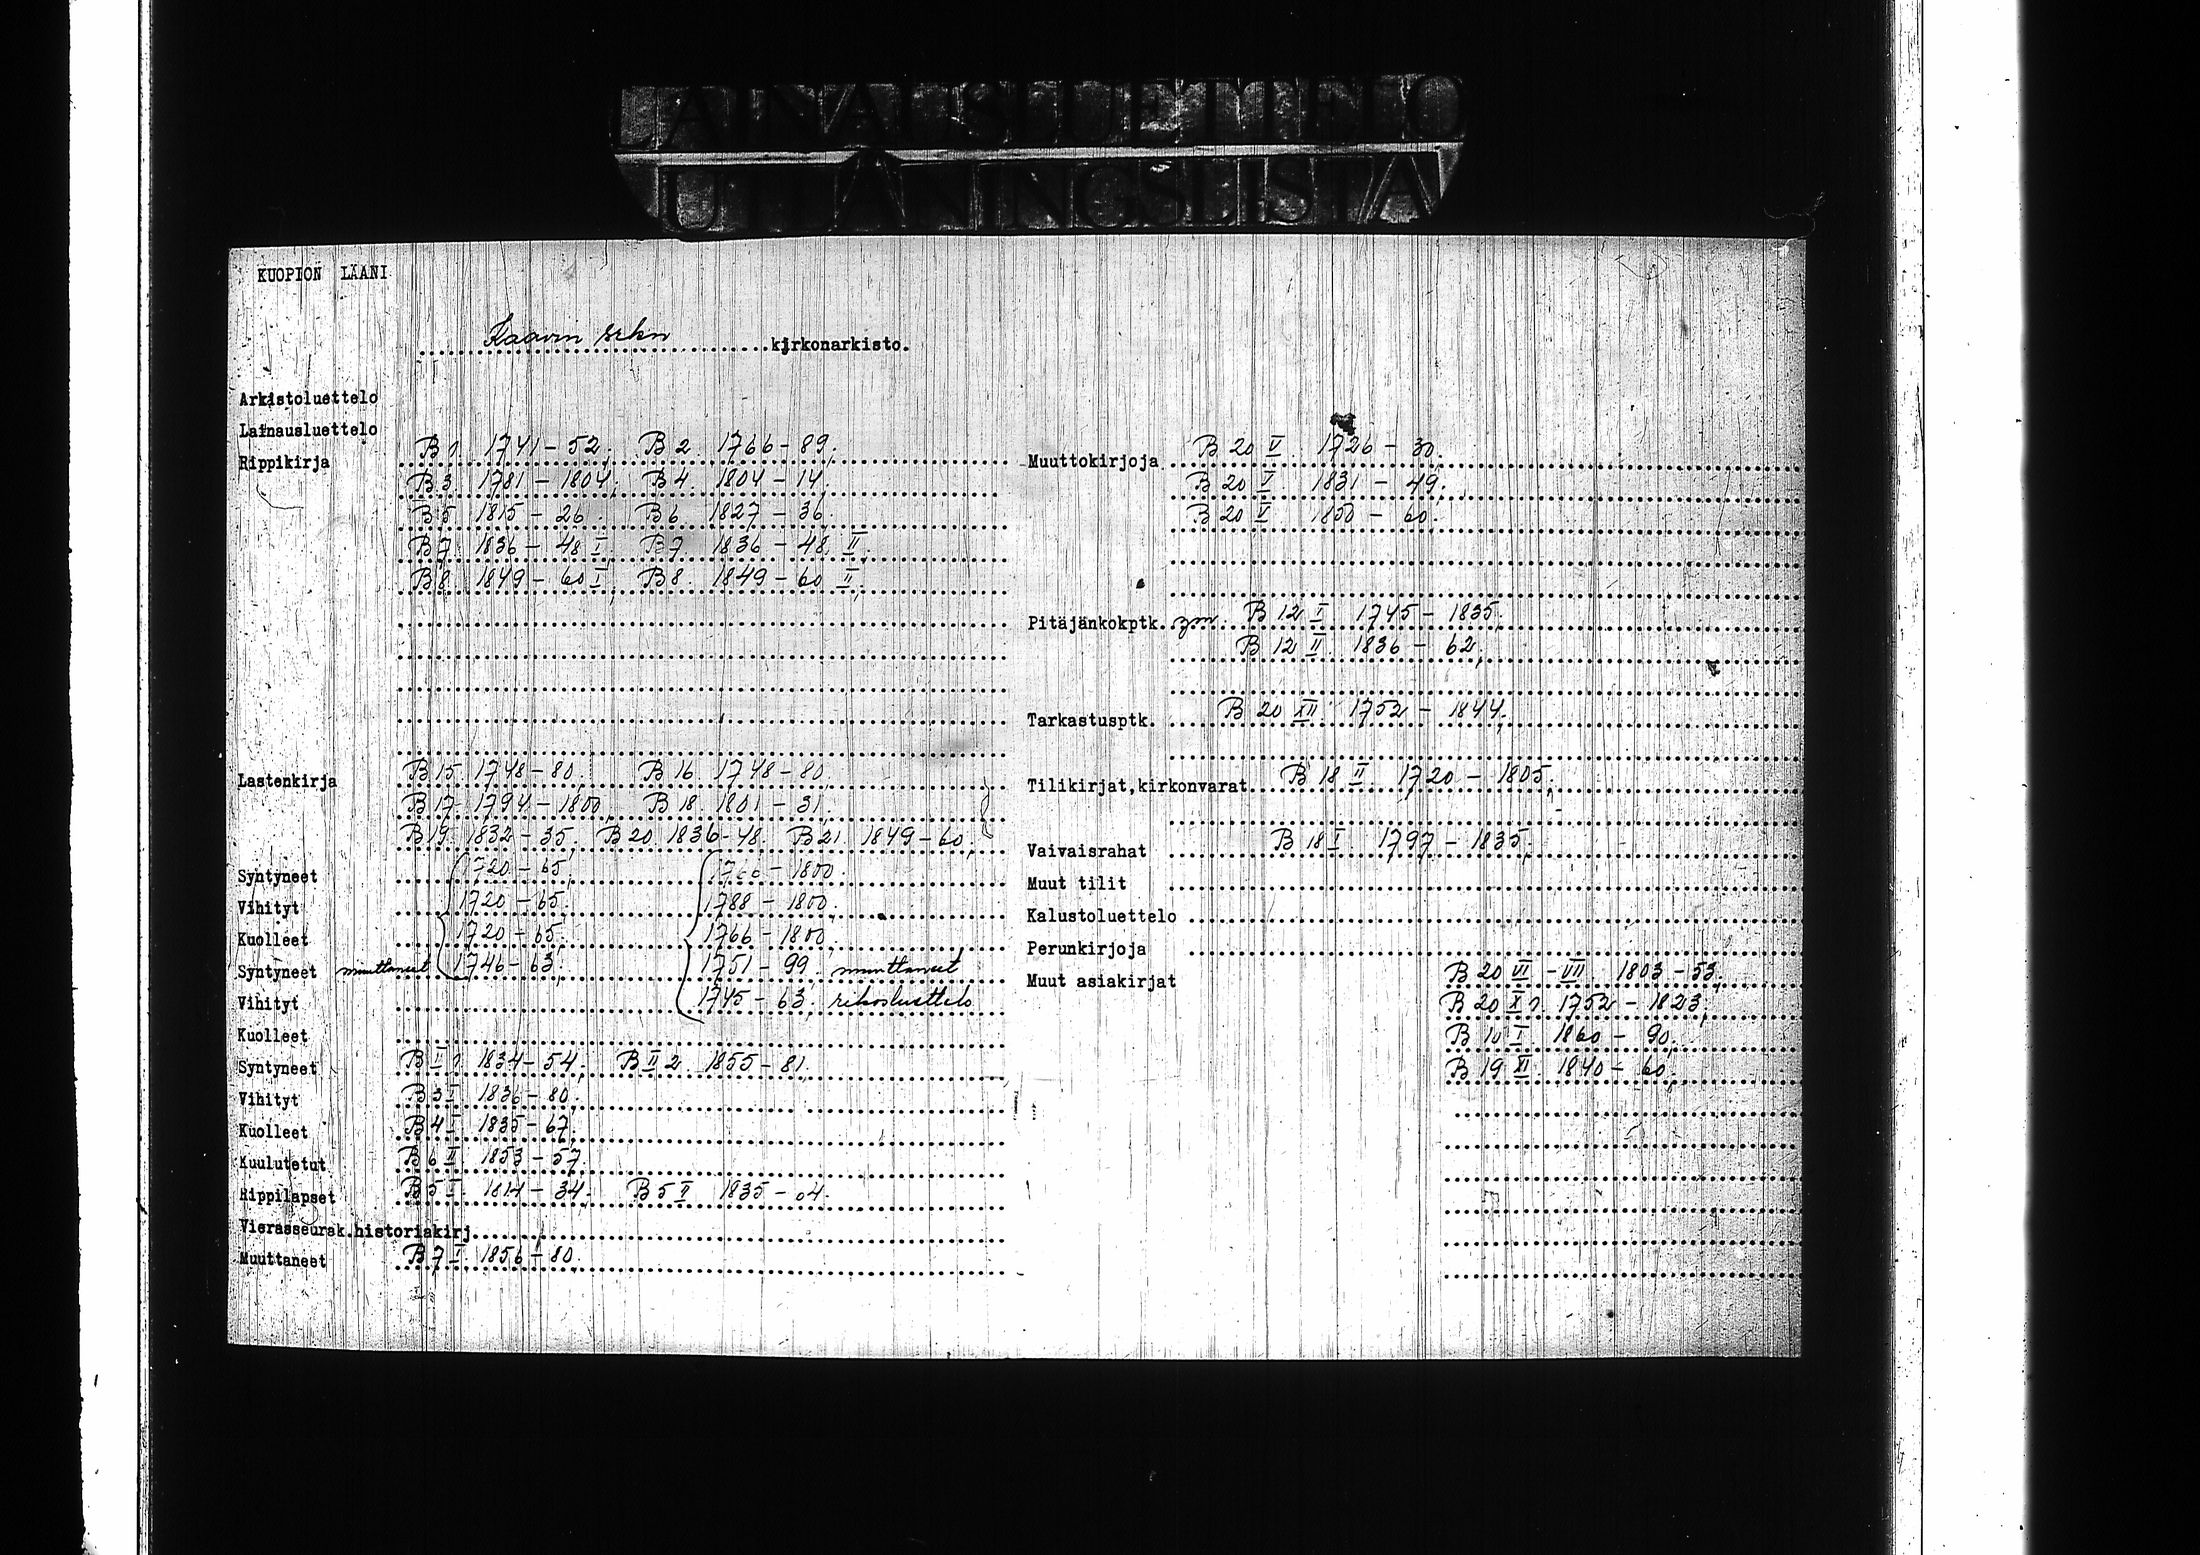 LAINAUSLUETTELO
UTLÅNINGSLISTA
KUOPION LÄÄNI
Kaavin srkn kirkonarkisto.
Arkistoluettelo
Lainausluettelo
Rippikirja B 1 1741-52; B 2 1766-89;
B 3 1781-1804; B 4 1804-14;
B 5 1815-26 B 6 1827-36;
B 7 1836-48 I; B 7 1836-48 II;
B 8 1849-60 I; B 8 1849-60 II;
Lastenkirja B 15 1748-80; B 16 1748-80;
B 17 1794-1800; B 18 1801-31;
B 19 1832-35; B 20 1836-48; B 21 1849-60;
Syntyneet 1720-65; 1766-1800;
Vihityt 1720-65; 1788-1800;
Kuolleet 1720-65; 1766-1800;
Syntyneet muuttaneet 1746-63; 1751-99; muuttaneet
Vihityt 1745-63; rikosluettelo
Kuolleet
Syntyneet B I 1 1834-54; B II 2 1855-81
Vihityt B 3 I 1836-80;
Kuolleet B 4 I 1835-67;
Kuulutetut B 6 II 1853-57.
Rippilapset B 5 I 1814-34; B 5 II 1835-
Vierasseurak.historiakirj.
Muuttaneet B 7 I 1856-80
Muuttokirjoja B 20 V 1726-30;
B 20 V 1831-49;
B 20 V 1850-60;
Pitäjänkokptk. ym. B 12 I 1745-1835;
B 12 II 1836-62;
Tarkastusptk. B 20 XII 1752-1844;
Tilikirjat,kirkonvarat B 18 II 1720-1805;
Vaivaisrahat B 18 I 1797-1835;
Muut tilit
Kalustoluettelo
Perunkirjoja
Muut asiakirjat B 20 VI-VII 1803-53;
B 20 X 1 1752-1823;
B 10 I 1860-90;
B 19 XI 1840-60;